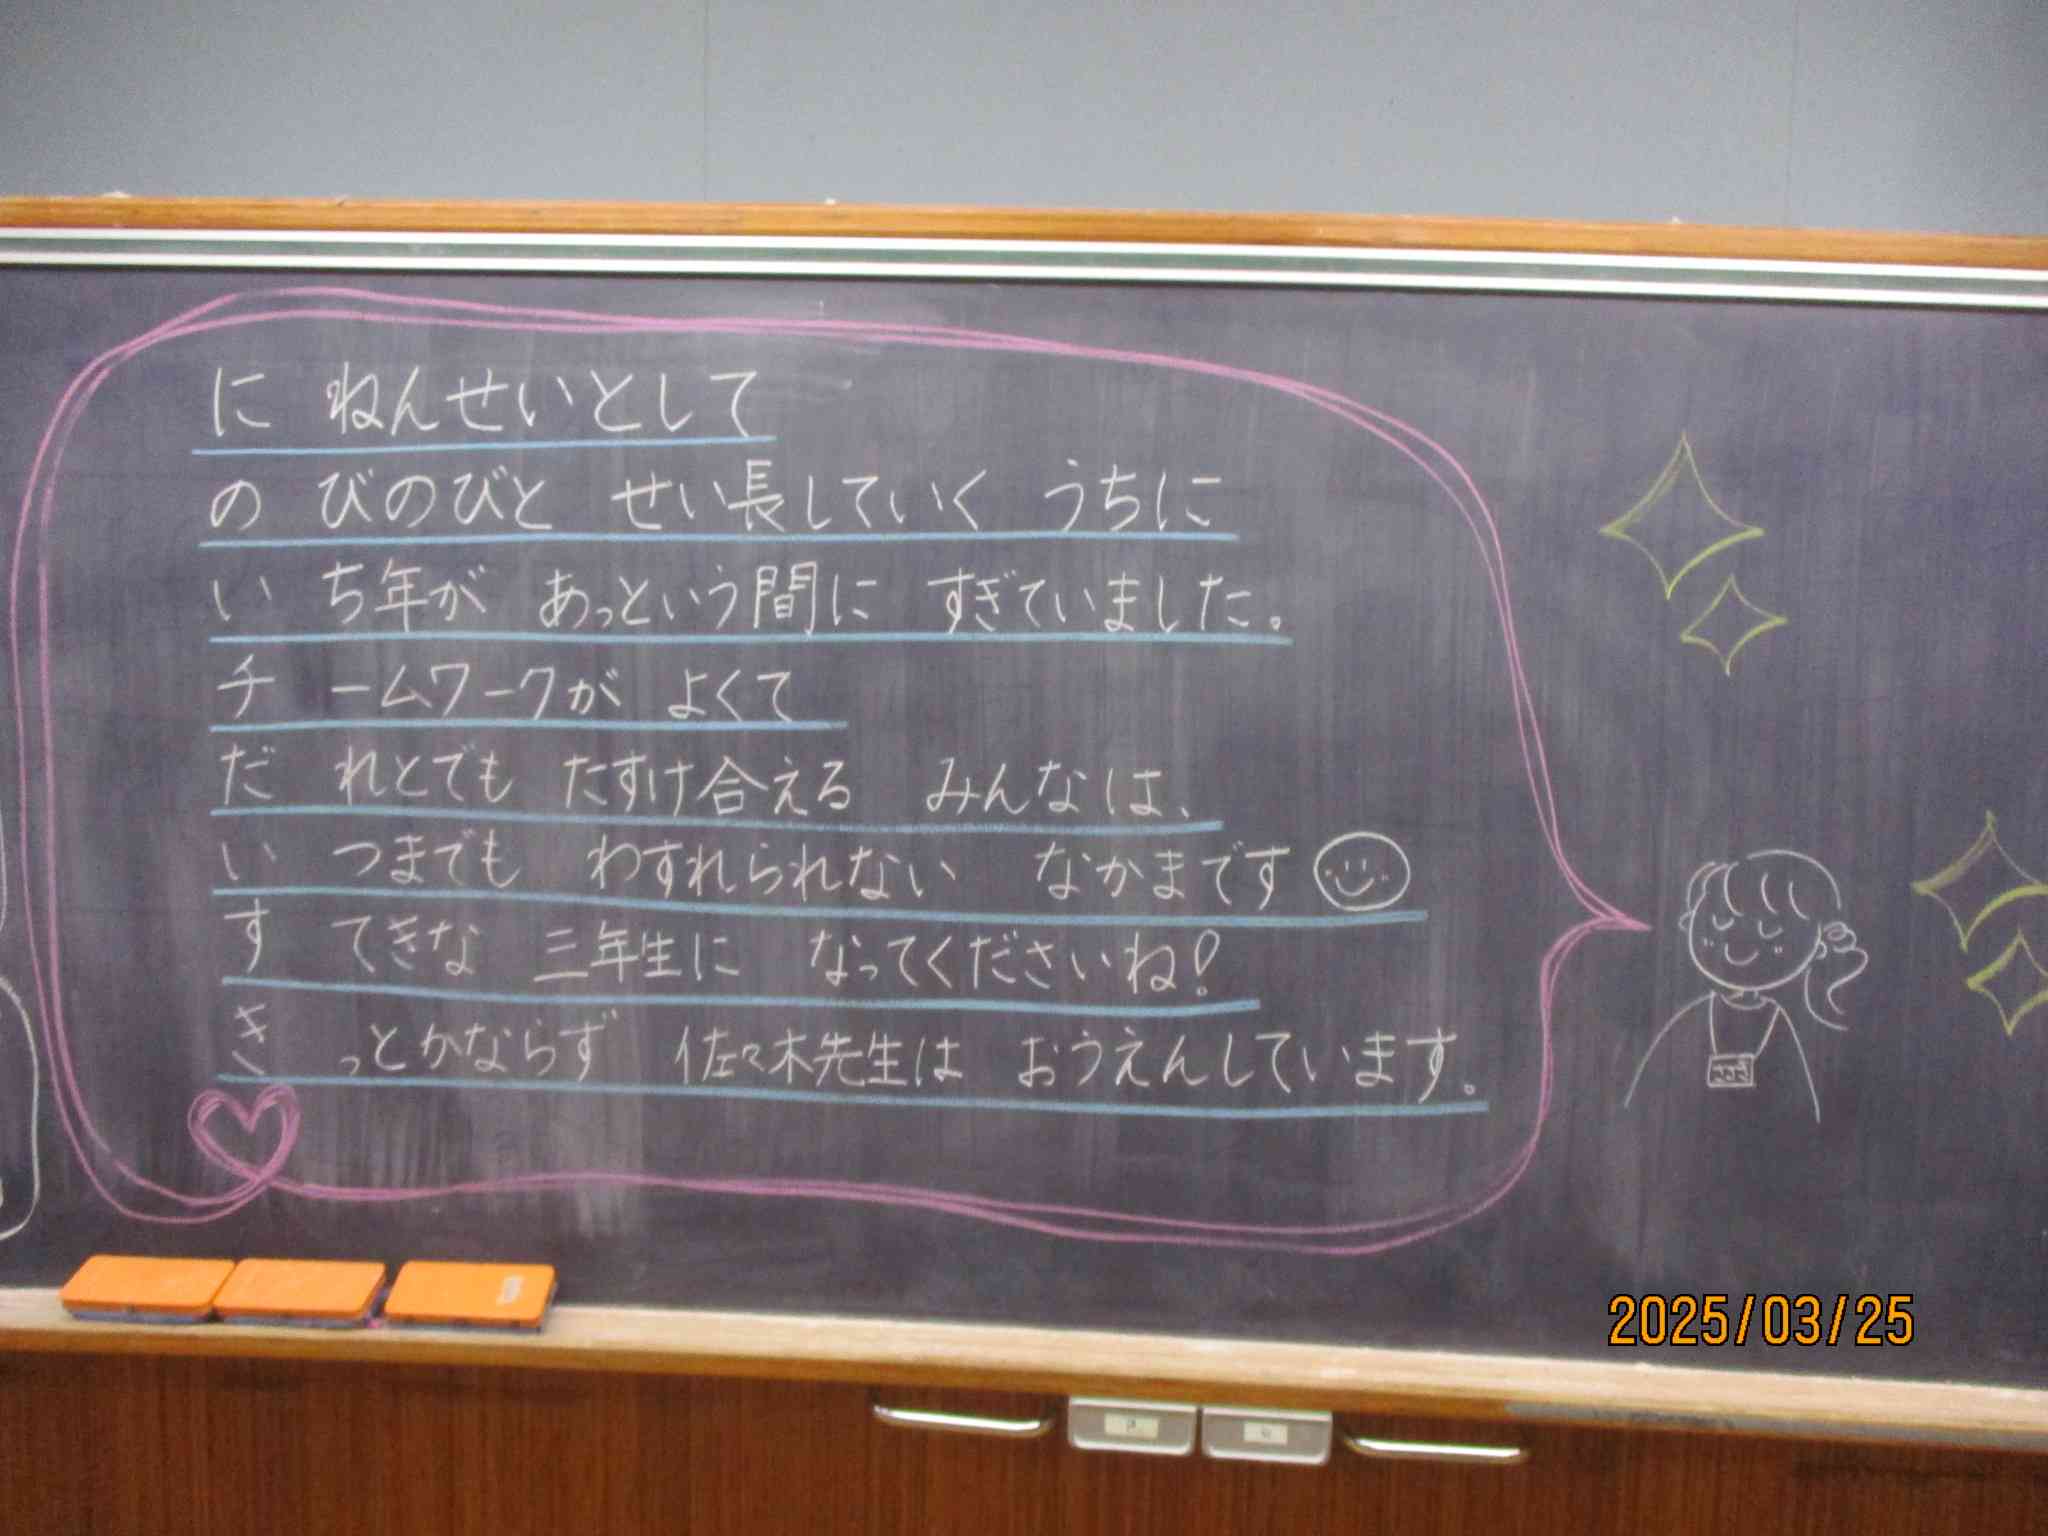 に ねんせいとして
の びのびと せい長していく うちに
い ち年が あっという間に すぎていました。
チ ームワークが よくて
だ れとでも たすけ合える みんなは、
い つまでも わすれられない なかまです
す てきな 三年生に なってくださいね!
き っとかならず 佐々木先生は おうえんしています。
ささき
2025/03/25